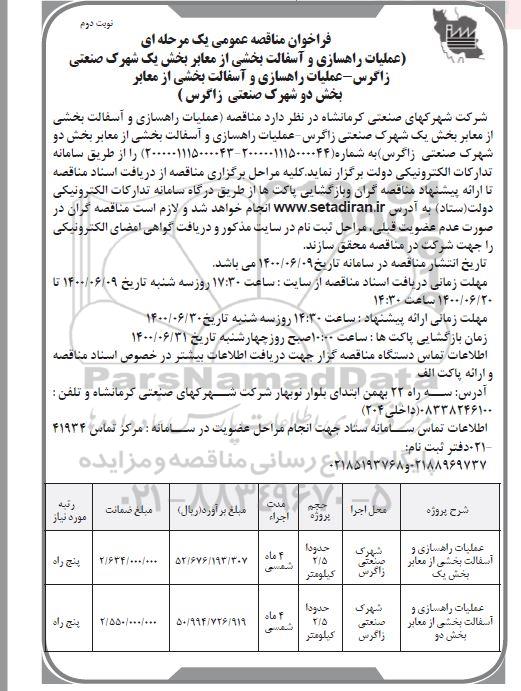 نوبت دوم
فراخوان مناقصه عمومی یک مرحله ای
(عملیات راهسازی و آسفالت بخشی از معابر بخش یک شهرک صنعتی
زاگرس-عملیات راهسازی و آسفالت بخشی از معابر
بخش دو شهرک صنعتی زاگرس )
شرکت شهرکهای صنعتی کرمانشاه در نظر دارد مناقصه (عملیات راهسازی و آسفالت بخشی
از معابر بخش یک شهرک صنعتی زاگرس-عملیات راهسازی و آسفالت بخشی از معابر بخش دو
شهرک صنعتی زاگرس)به شماره(۲۰۰۰۰۰۱۱۱۵۰۰۰۰۴۴-۲۰۰۰۰۰۱۱۱۵۰۰۰۰۴۳) را از طریق سامانه
تدارکات الکترونیکی دولت برگزار نماید.کلیه مراحل برگزاری مناقصه از دریافت اسناد مناقصه
تا ارائه پیشنهاد مناقصه گران وبازگشایی پاکت ها از طریق درگاه سامانه تدارکات الکترونیکی
دولت(ستاد) به آدرس www.setadiran.ir انجام خواهد شد و لازم است مناقصه گران در
صورت عدم عضویت قبلی، مراحل ثبت نام در سایت مذکور و دریافت گواهی امضای الکترونیکی
را جهت شرکت در مناقصه محقق سازند.
تاریخ انتشار مناقصه در سامانه تاریخ ۱۴۰۰/۰۶/۰۹ می باشد.
مهلت زمانی دریافت اسناد مناقصه از سایت : ساعت ۱۷:۳۰ روزسه شنبه تاریخ ۱۴۰۰/۰۶/۰۹ تا
۱۴۰۰/۰۶/۲۰ ساعت ۱۴:۳۰
مهلت زمانی ارائه پیشنهاد : ساعت ۱۴:۳۰ روزسه شنبه تاریخ۱۴۰۰/۰۶/۳۰
زمان بازگشایی پاکت ها : ساعت ۱۰:۰۰صبح روزچهارشنبه تاریخ ۱۴۰۰/۰۶/۳۱
اطلاعات تماس دستگاه مناقصه گزار جهت دریافت اطلاعات بیشتر در خصوص اسناد مناقصه
و ارائه پاکت الف
آدرس: سه راه ۲۲ بهمن ابتدای بلوار نوبهار شرکت شهرکهای صنعتی کرمانشاه و تلفن :
۰۸۳۳۸۲۴۶۱۰۰(داخلی۲۰۴)
اطلاعات تماس سامانه ستاد جهت انجام مراحل عضویت در سامانه : مرکز تماس ۴۱۹۳۴
-۰۲۱دفتر ثبت نام:
۰۲۱۸۸۹۶۹۷۳۷و۰۲۱۸۵۱۹۳۷۶۸
شرح پروژه محل اجرا حجم پروژه مدت اجراء مبلغ برآورد(ریال) مبلغ ضمانت رتبه مورد نیاز
عملیات راهسازی و آسفالت بخشی از معابر بخش یک شهرک صنعتی زاگرس حدودا ۲/۵ کیلومتر ۴ ماه شمسی ۵۲/۶۷۶/۱۹۳/۳۰۷ ۲/۶۳۴/۰۰۰/۰۰۰ پنج راه
عملیات راهسازی و آسفالت بخشی از معابر بخش دو شهرک صنعتی زاگرس حدودا ۲/۵ کیلومتر ۴ ماه شمسی ۵۰/۹۹۴/۷۲۶/۹۱۹ ۲/۵۵۰/۰۰۰/۰۰۰ پنج راه
ParsNamadData
پایگاه اطلاع رسانی مناقصه و مزایده
۰۲۱-۸۸۳۴۹۶۷۰-۵